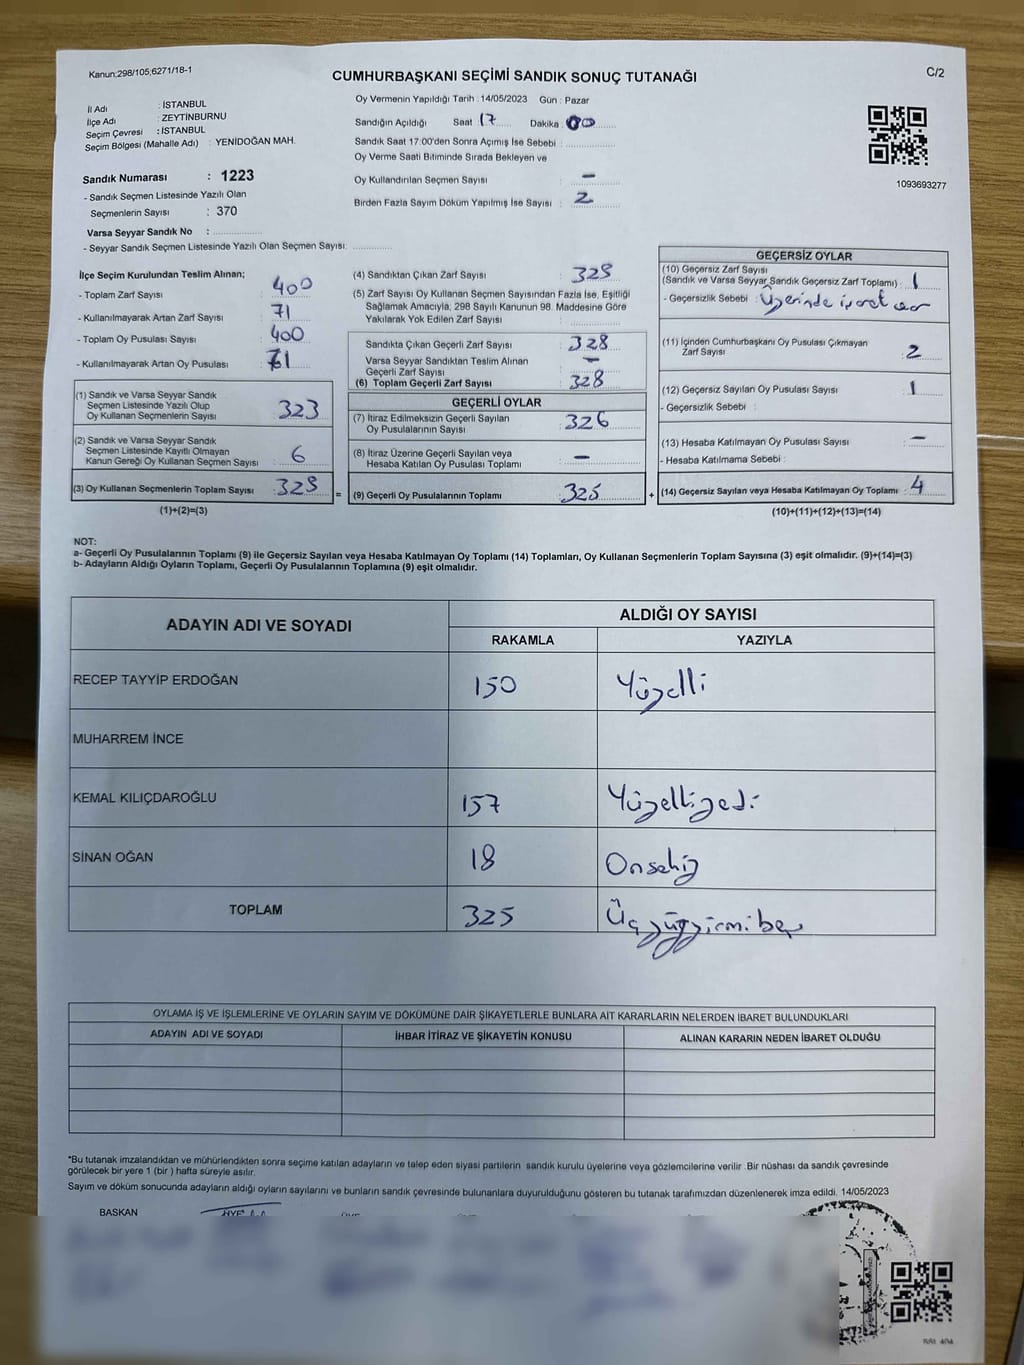 Kanun:298/105;6271/18-1
CUMHURBAŞKANI SEÇİMİ SANDIK SONUÇ TUTANAĞI
C/2
İl Adı : İSTANBUL
İlçe Adı : ZEYTİNBURNU
Seçim Çevresi : İSTANBUL
Seçim Bölgesi (Mahalle Adı) : YENİDOĞAN MAH.
Sandık Numarası : 1223
- Sandık Seçmen Listesinde Yazılı Olan
Seçmenlerin Sayısı : 370
Varsa Seyyar Sandık No :
- Seyyar Sandık Seçmen Listesinde Yazılı Olan Seçmen Sayısı:
Oy Vermenin Yapıldığı Tarih : 14/05/2023 Gün : Pazar
Sandığın Açıldığı Saat 17 Dakika 00
Sandık Saat 17:00'den Sonra Açımış İse Sebebi :
Oy Verme Saati Bitiminde Sırada Bekleyen ve
Oy Kullandırılan Seçmen Sayısı : -
Birden Fazla Sayım Döküm Yapılmış İse Sayısı : 2
1093693277
İlçe Seçim Kurulundan Teslim Alınan;
- Toplam Zarf Sayısı : 400
- Kullanılmayarak Artan Zarf Sayısı : 71
- Toplam Oy Pusulası Sayısı : 400
- Kullanılmayarak Artan Oy Pusulası : 71
(1) Sandık ve Varsa Seyyar Sandık
Seçmen Listesinde Yazılı Olup
Oy Kullanan Seçmenlerin Sayısı : 323
(2) Sandık ve Varsa Seyyar Sandık
Seçmen Listesinde Kayıtlı Olmayan
Kanun Gereği Oy Kullanan Seçmen Sayısı : 6
(3) Oy Kullanan Seçmenlerin Toplam Sayısı :
(1)+(2)=(3)
(4) Sandıktan Çıkan Zarf Sayısı :
(5) Zarf Sayısı Oy Kullanan Seçmen Sayısından Fazla İse, Eşitliği
Sağlamak Amacıyla, 298 Sayılı Kanunun 98. Maddesine Göre
Yakılarak Yok Edilen Zarf Sayısı :
Sandıkta Çıkan Geçerli Zarf Sayısı : 328
Varsa Seyyar Sandıktan Teslim Alınan
Geçerli Zarf Sayısı : -
(6) Toplam Geçerli Zarf Sayısı : 328
GEÇERLİ OYLAR
(7) İtiraz Edilmeksizin Geçerli Sayılan
Oy Pusulalarının Sayısı : 326
(8) İtiraz Üzerine Geçerli Sayılan veya
Hesaba Katılan Oy Pusulası Toplamı : -
= (9) Geçerli Oy Pusulalarının Toplamı : 325 +
GEÇERSİZ OYLAR
(10) Geçersiz Zarf Sayısı
(Sandık ve Varsa Seyyar Sandık Geçersiz Zarf Toplamı) : 1
- Geçersizlik Sebebi : Üzerinde işaret var
(11) İçinden Cumhurbaşkanı Oy Pusulası Çıkmayan
Zarf Sayısı : 2
(12) Geçersiz Sayılan Oy Pusulası Sayısı : 1
- Geçersizlik Sebebi :
(13) Hesaba Katılmayan Oy Pusulası Sayısı : -
- Hesaba Katılmama Sebebi :
(14) Geçersiz Sayılan veya Hesaba Katılmayan Oy Toplamı : 4
(10)+(11)+(12)+(13)=(14)
NOT:
a- Geçerli Oy Pusulalarının Toplamı (9) ile Geçersiz Sayılan veya Hesaba Katılmayan Oy Toplamı (14) Toplamları, Oy Kullanan Seçmenlerin Toplam Sayısına (3) eşit olmalıdır. (9)+(14)=(3)
b- Adayların Aldığı Oyların Toplamı, Geçerli Oy Pusulalarının Toplamına (9) eşit olmalıdır.
ADAYIN ADI VE SOYADI ALDIĞI OY SAYISI
RAKAMLA YAZIYLA
RECEP TAYYİP ERDOĞAN 150 Yüzelli
MUHARREM İNCE
KEMAL KILIÇDAROĞLU 157 Yüzelliyedi
SİNAN OĞAN 18 Onsekiz
TOPLAM 325 Üçyüzyirmibeş
OYLAMA İŞ VE İŞLEMLERİNE VE OYLARIN SAYIM VE DÖKÜMÜNE DAİR ŞİKAYETLERLE BUNLARA AİT KARARLARIN NELERDEN İBARET BULUNDUKLARI
ADAYIN ADI VE SOYADI İHBAR İTİRAZ VE ŞİKAYETİN KONUSU ALINAN KARARIN NEDEN İBARET OLDUĞU
*Bu tutanak imzalandıktan ve mühürlendikten sonra seçime katılan adayların ve talep eden siyasi partilerin sandık kurulu üyelerine veya gözlemcilerine verilir .Bir nüshası da sandık çevresinde
görülecek bir yere 1 (bir ) hafta süreyle asılır.
Sayım ve döküm sonucunda adayların aldığı oyların sayılarını ve bunların sandık çevresinde bulunanlara duyurulduğunu gösteren bu tutanak tarafımızdan düzenlenerek imza edildi. 14/05/2023
BAŞKAN